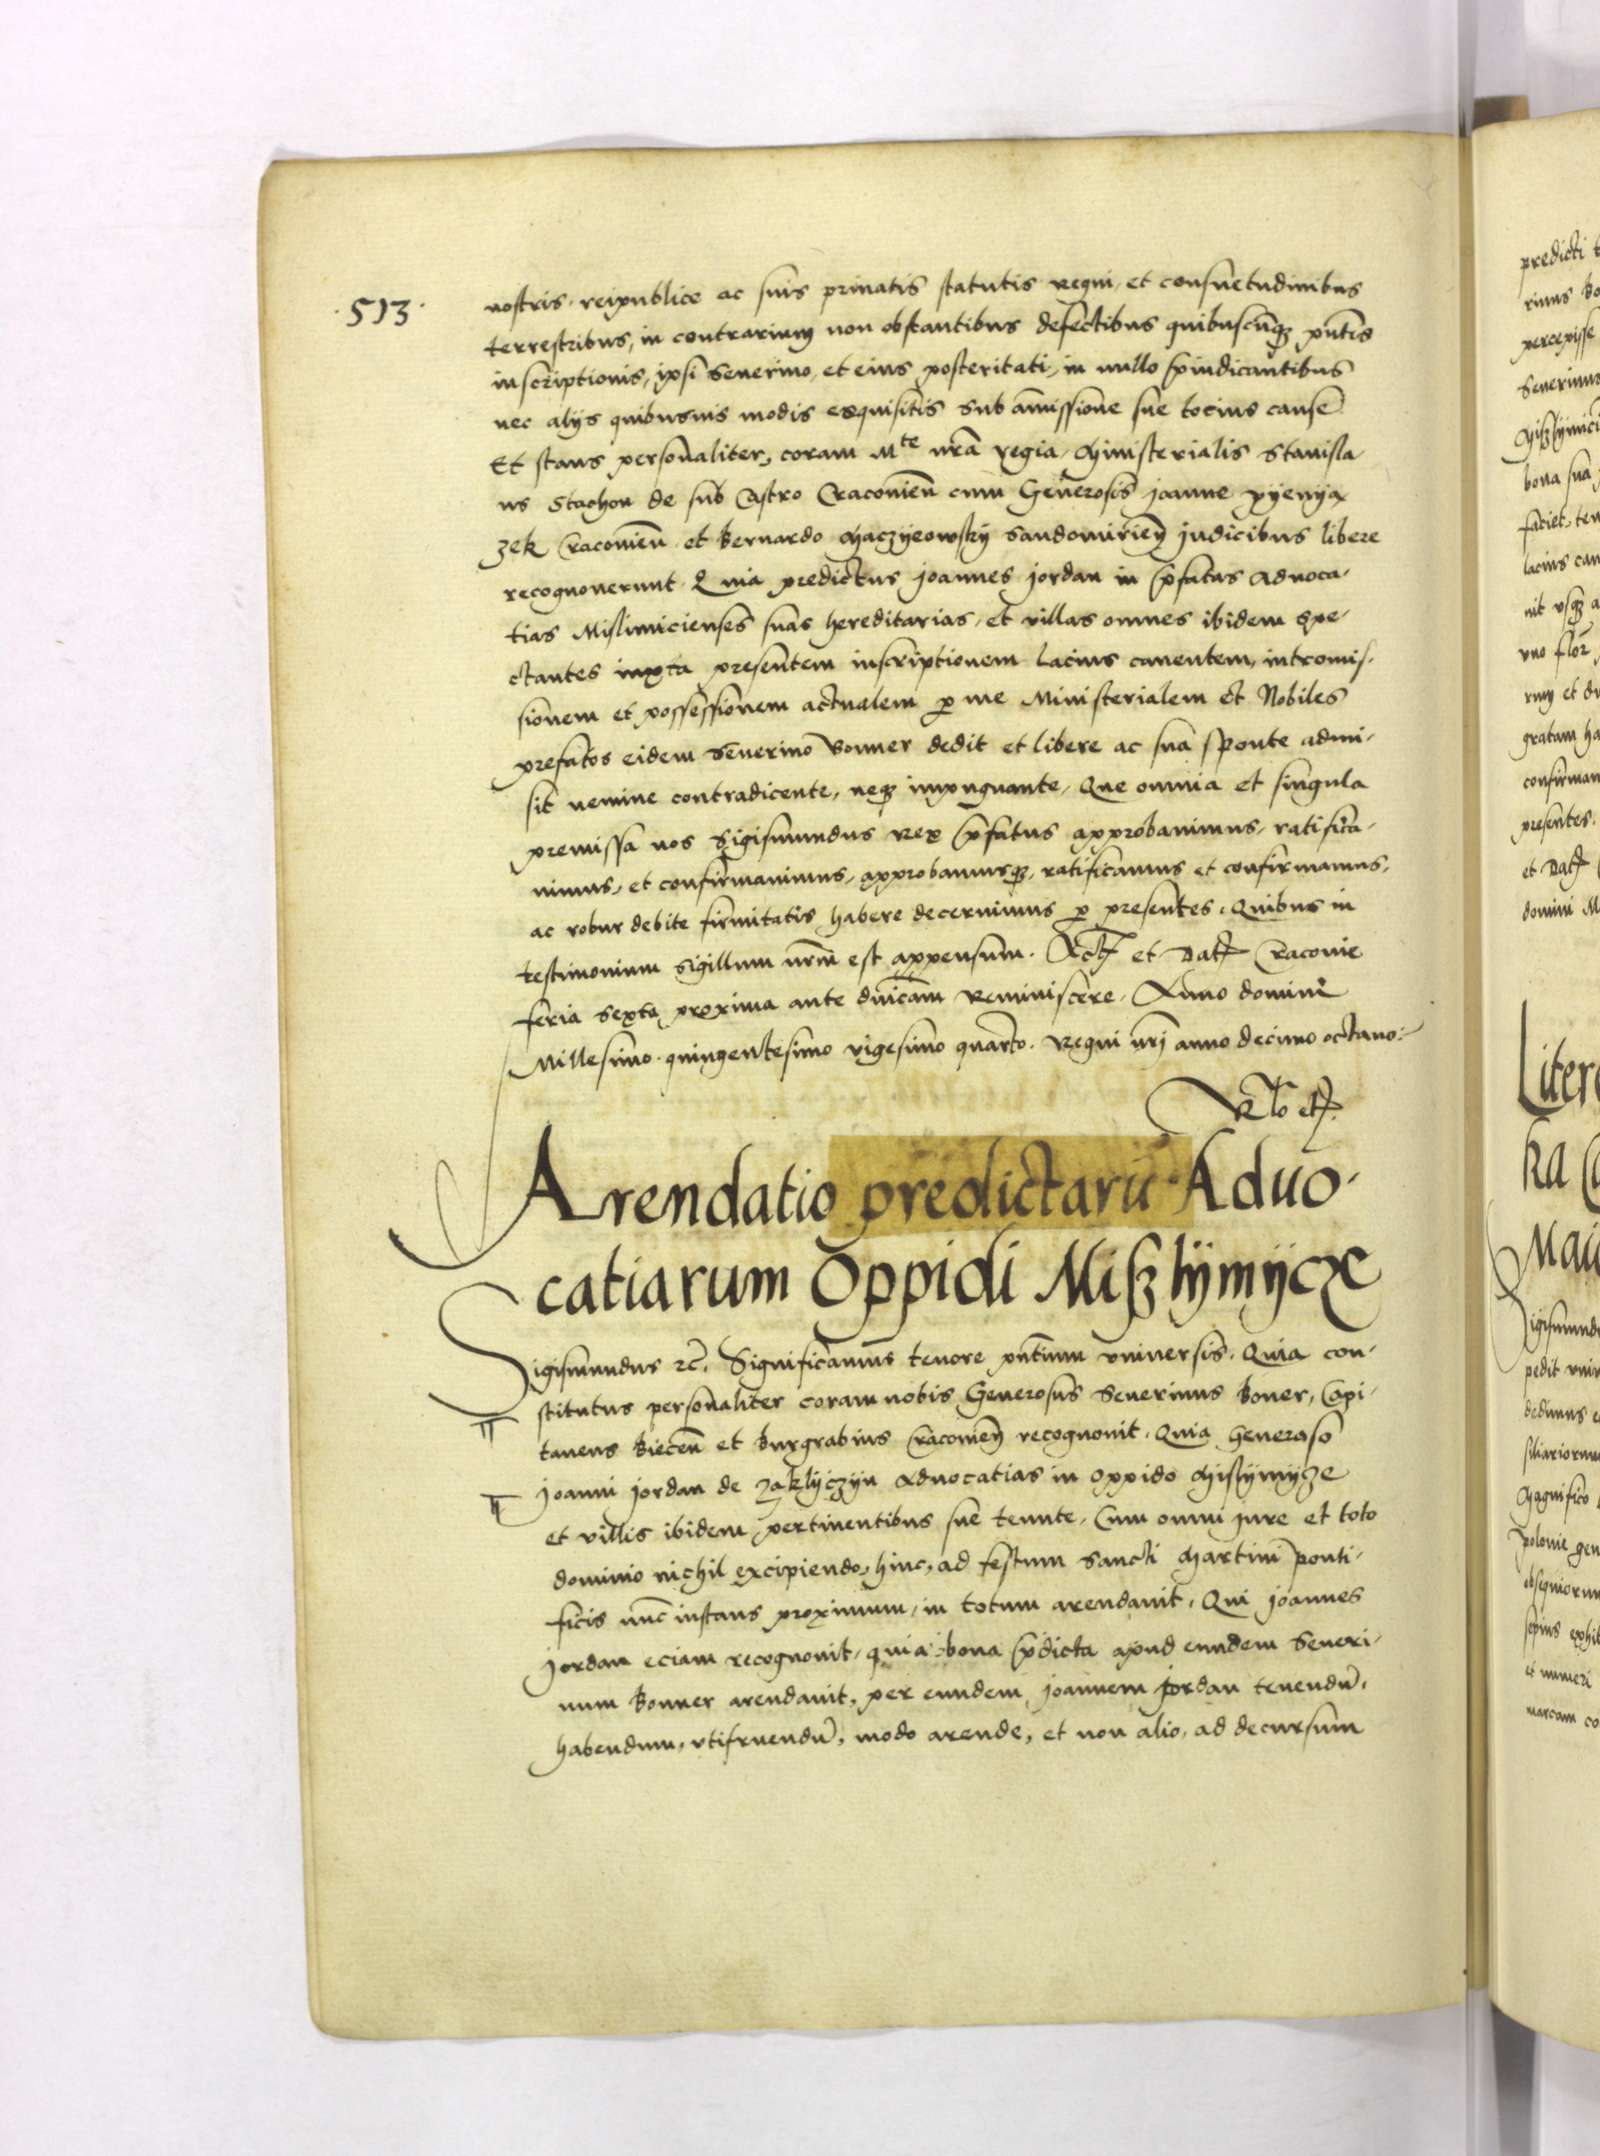 ·513·
nostris, reipublice ac suis priuatis statutis regni et consuetudinibus
terrestribus, in contrarium non obstantibus defectibus quibuscūqȝ pn̄tis
inscriptionis, ipsi Seuerino, et eius posteritati, in nullo p̄iudicantibus
nec alijs quibusuis modis exquisitis sub amissione sue tocius cause
Et stans personaliter, coram Mte nrā regia, Ministerialis Stanisla
us Stachon de sub Castro Cracouien̄ cum Generosis Joanne pyenyą
zek Cracouien̄ et Bernardo Maczyeowsky Sandomirien̄ Judicibus libere
recognouerunt Quia predictus Joannes Jordan in p̄fatas aduoca-
tias Mislimicienses suas hereditarias, et villas omnes ibidem spe-
ctantes iuxta presentem inscriptionem lacius canentem, intromis-
sionem et possessionem actualem p me Ministerialem et Nobiles
prefatos eidem Seuerino Bonner dedit et libere ac sua sponte admi-
sit nemine contradicente, neqȝ impugnante, Que omnia et singula
premissa nos Sigismundus Rex p̄fatus approbauimus, ratifica-
uimus, et confirmauimus, approbamusqȝ, ratificamus et confirmamus,
ac robur debite firmitatis habere decernimus p presentes. Quibus in
testimonium sigillum nrm̄ est appensum. Act et Dat Cracouie
feria sexta proxima ante dn̄icam Reminiscere, Anno domini
Millesimo quingentesimo vigesimo quarto. Regni nrj̄ anno decimo octauo.
Rlo etc.
Arendatio predictarū Aduo-
catiarum Oppidi Mißlÿmÿcze
Sigismundus ꝛc̄. Significamus tenore pn̄tium vniuersis. Quia con-
stitutus personaliter coram nobis Generosus Seuerinus Boner, Capi-
taneus Biecen̄ et Burgrabius Cracouien̄ recognouit. Quia Generoso
Joanni Jordan de Zaklyczyn Aduocatias in oppido Mislymycze
et villis ibidem pertinentibus sue tenute, Cum omni jure et toto
dominio nichil excipiendo, hinc, ad festum Sancti Martini ponti-
ficis nunc instans proximum, in totum arendauit. Qui Joannes
Jordan eciam recognouit, quia bona p̄dicta apud eundem Seueri-
num Bonner arendauit, per eundem Joannem Jordan tenendū,
habendum, vtifruendū, modo arende, et non alio, ad decursum